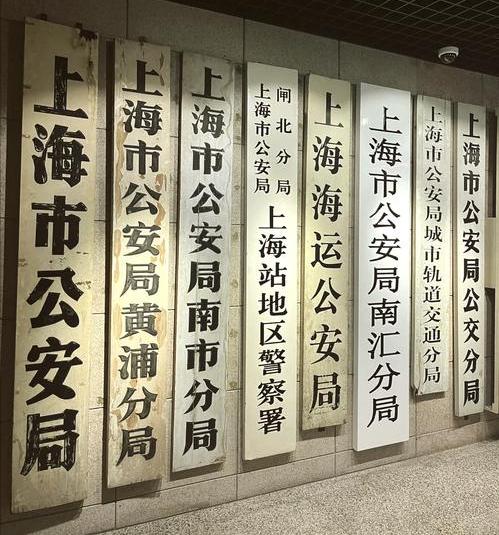 上海市公安局
上海市公安局黄浦分局
上海市公安局南市分局
上海市公安局
闸北分局
上海站地区警察署
上海海运公安局
上海市公安局南汇分局
上海市公安局城市轨道交通分局
上海市公安局公交分局